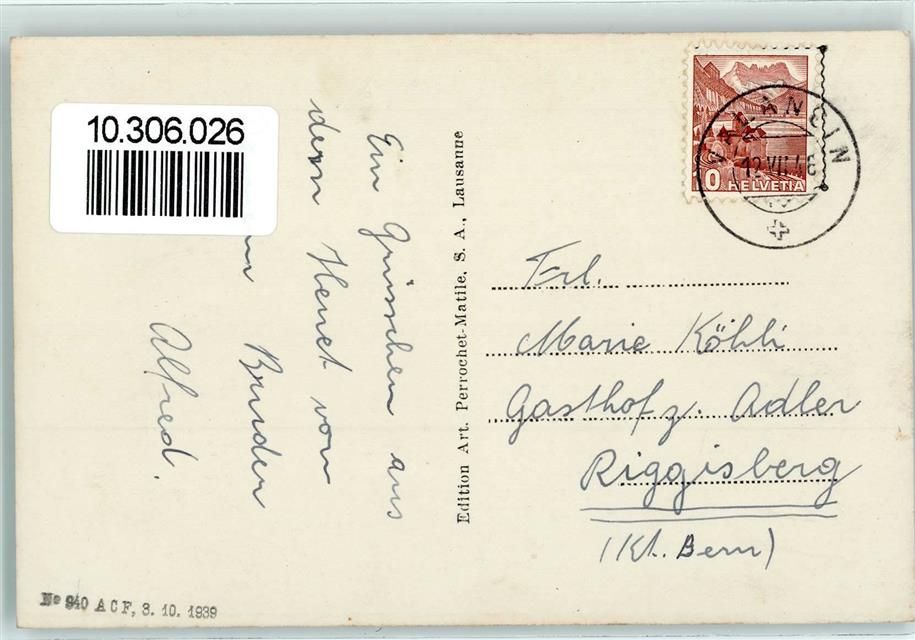 10.306.026
Ein Grüsschen aus
dem Heuet von
Bruder
Alfred.
Edition Art. Perrochet-Matile, S. A., Lausanne
VALANGIN
12.VII.46
10 HELVETIA
Frl.
Marie Köhli
Gasthof z. Adler
Riggisberg
(Kt. Bern)
No 940 ACF, 3. 10. 1939